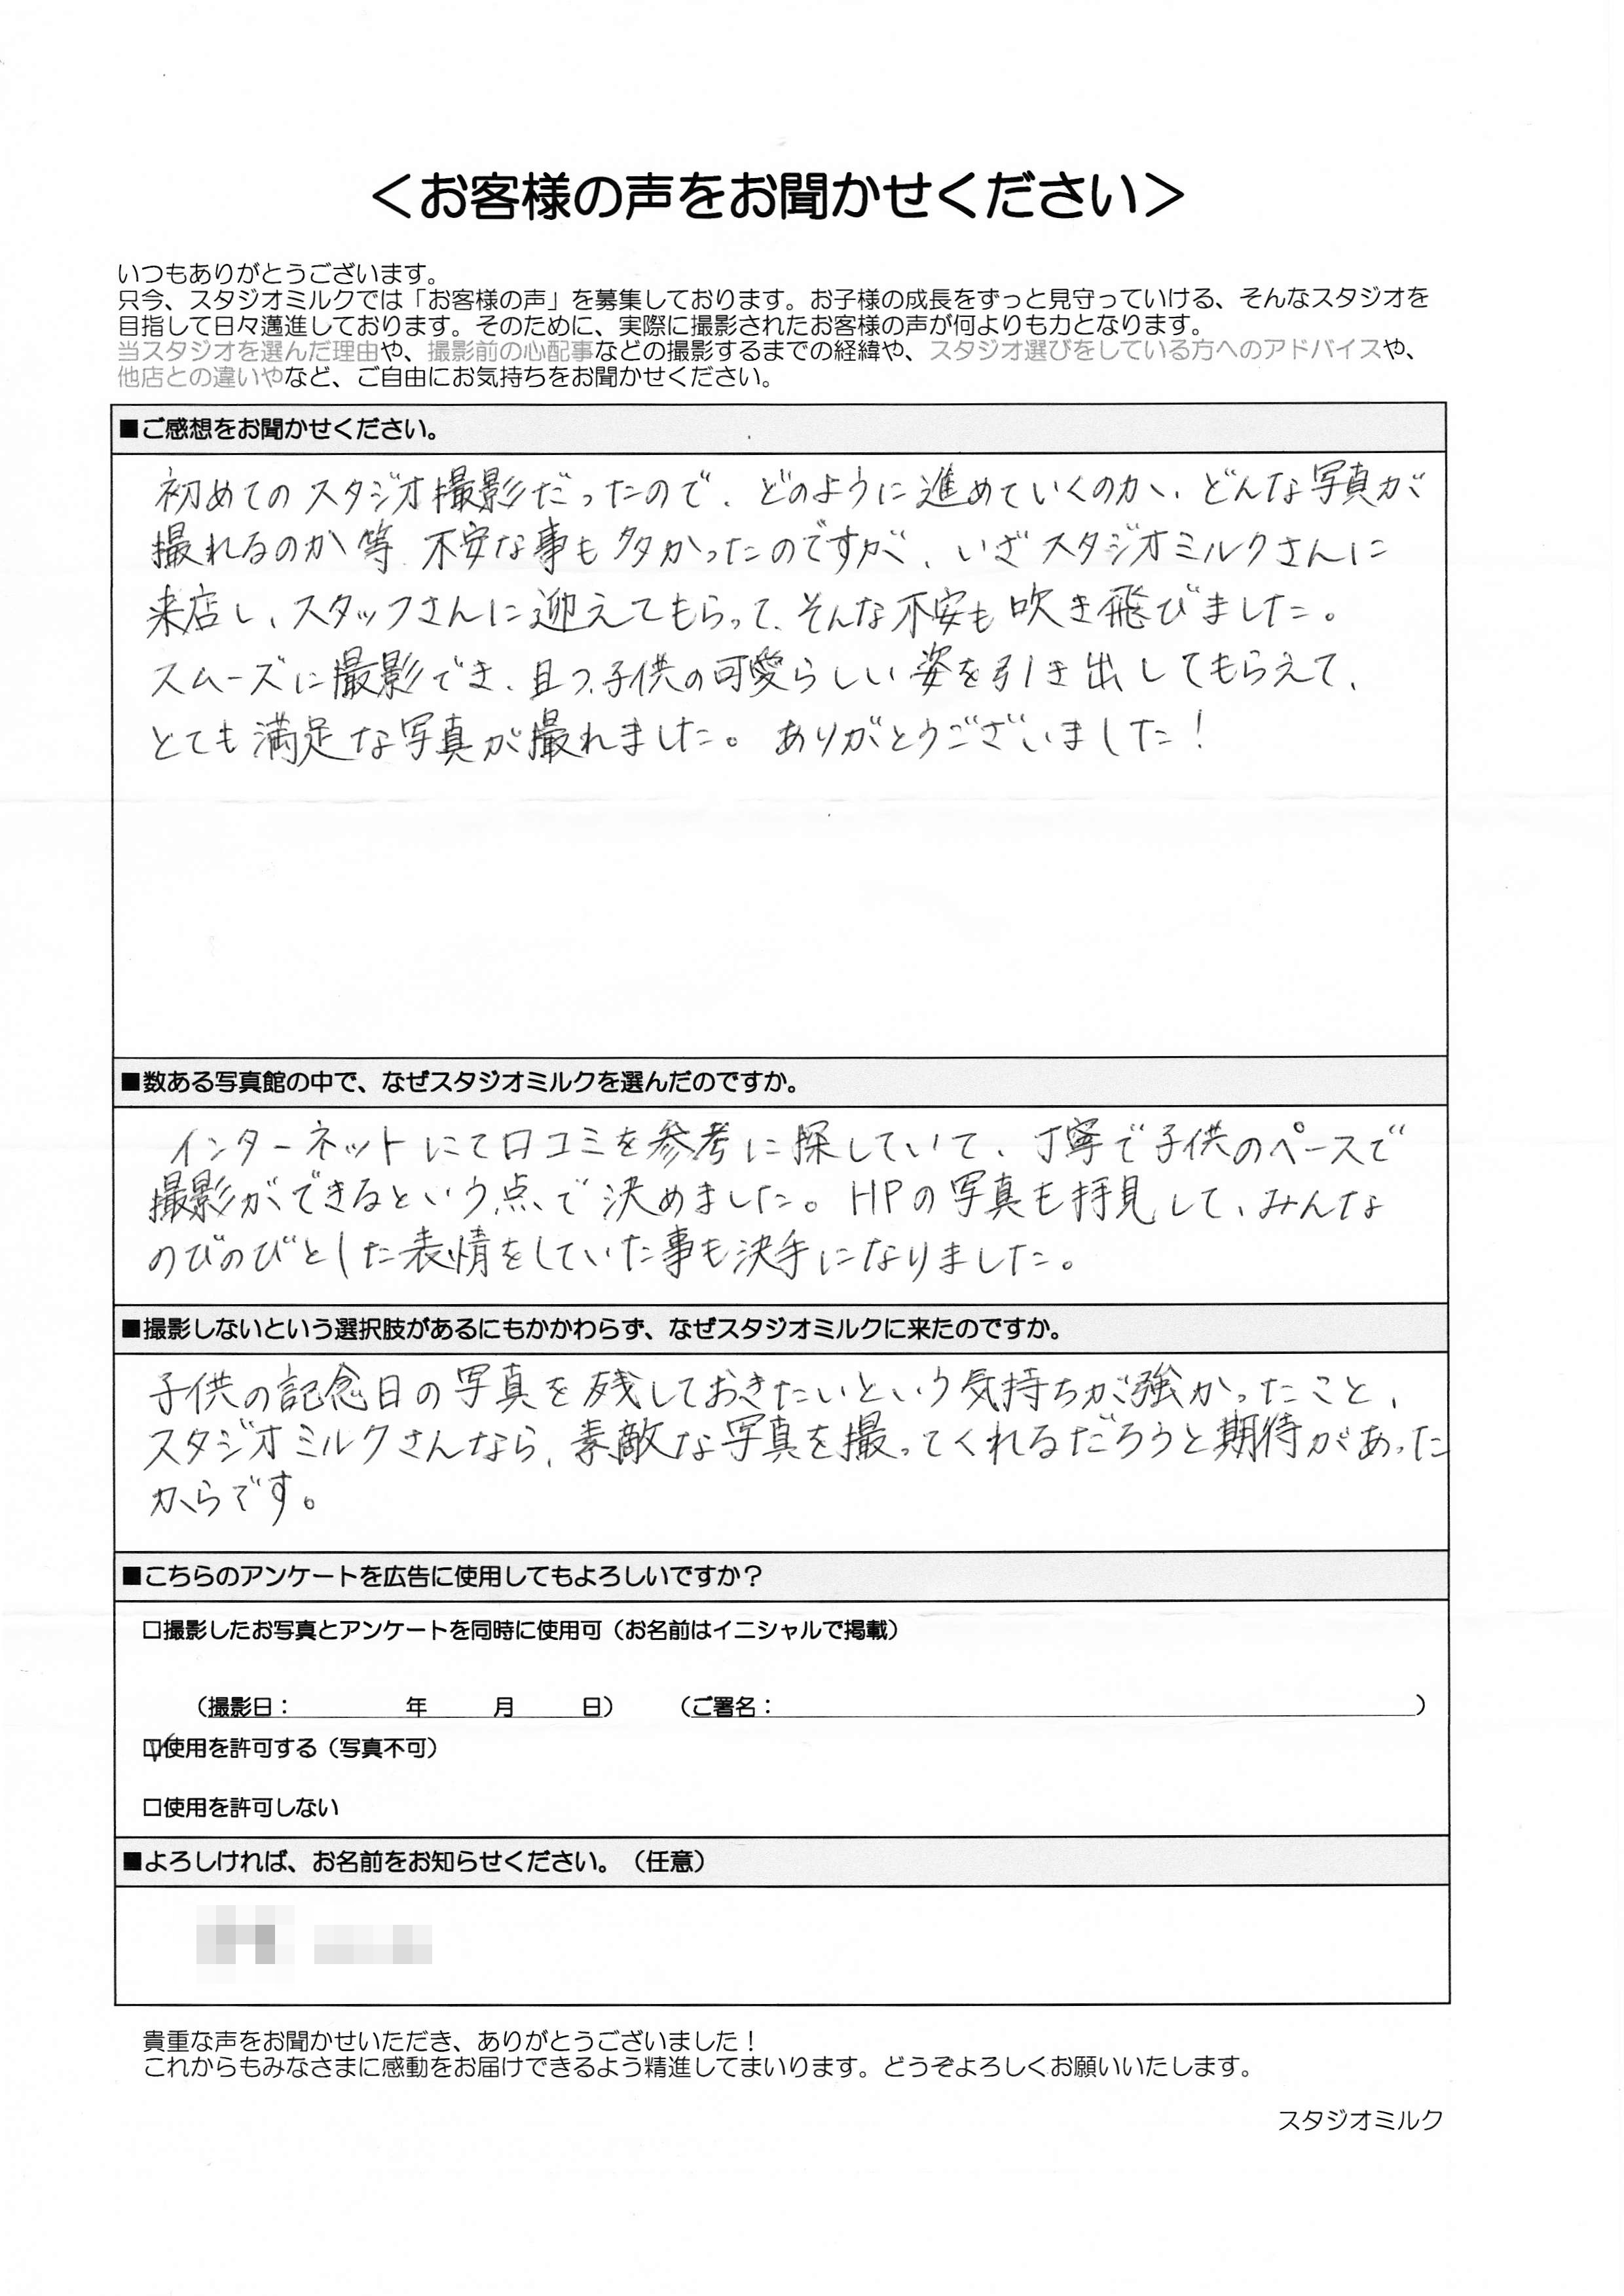 ＜お客様の声をお聞かせください＞
いつもありがとうございます。
只今、スタジオミルクでは「お客様の声」を募集しております。お子様の成長をずっと見守っていける、そんなスタジオを
目指して日々邁進しております。そのために、実際に撮影されたお客様の声が何よりも力となります。
当スタジオを選んだ理由や、撮影前の心配事などの撮影するまでの経緯や、スタジオ選びをしている方へのアドバイスや、
他店との違いやなど、ご自由にお気持ちをお聞かせください。
■ご感想をお聞かせください。
初めてのスタジオ撮影だったので、どのように進めていくのか、どんな写真が
撮れるのか等、不安な事も多かったのですが、いざスタジオミルクさんに
来店し、スタッフさんに迎えてもらって、そんな不安も吹き飛びました。
スムーズに撮影でき、且つ、子供の可愛らしい姿を引き出してもらえて、
とても満足な写真が撮れました。ありがとうございました！
■数ある写真館の中で、なぜスタジオミルクを選んだのですか。
インターネットにて口コミを参考に探していて、丁寧で子供のペースで
撮影ができるという点で決めました。HPの写真も拝見して、みんな
のびのびとした表情をしていた事も決手になりました。
■撮影しないという選択肢があるにもかかわらず、なぜスタジオミルクに来たのですか。
子供の記念日の写真を残しておきたいという気持ちが強かったこと、
スタジオミルクさんなら、素敵な写真を撮ってくれるだろうと期待があった
からです。
■こちらのアンケートを広告に使用してもよろしいですか？
□撮影したお写真とアンケートを同時に使用可（お名前はイニシャルで掲載）
（撮影日： 年 月 日） （ご署名： ）
☑使用を許可する（写真不可）
□使用を許可しない
■よろしければ、お名前をお知らせください。（任意）
貴重な声をお聞かせいただき、ありがとうございました！
これからもみなさまに感動をお届けできるよう精進してまいります。どうぞよろしくお願いいたします。
スタジオミルク